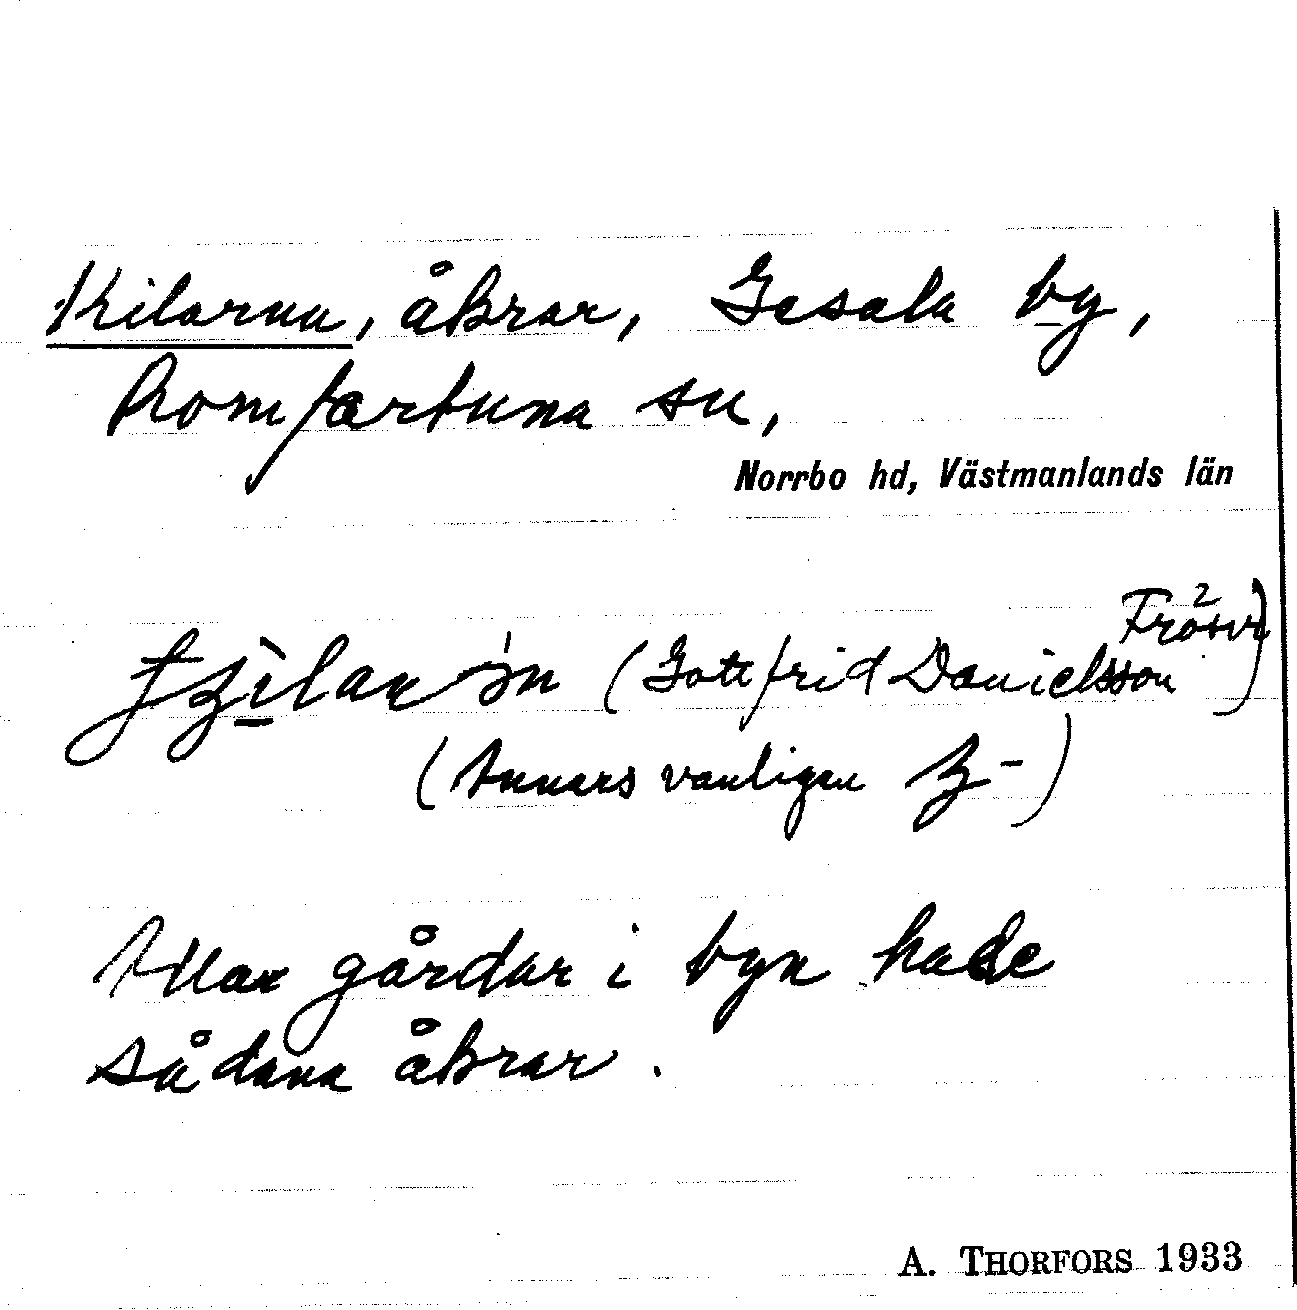 Kilarna, åkrar, Gesala by,
Romfartuna sn,
Norrbo hd, Västmanlands län
(Gottfrid Danielsson Frösvi 2)
(Annars vanligen
Allar gårdar i byn hade
sådana åkrar.
A. THORFORS 1933